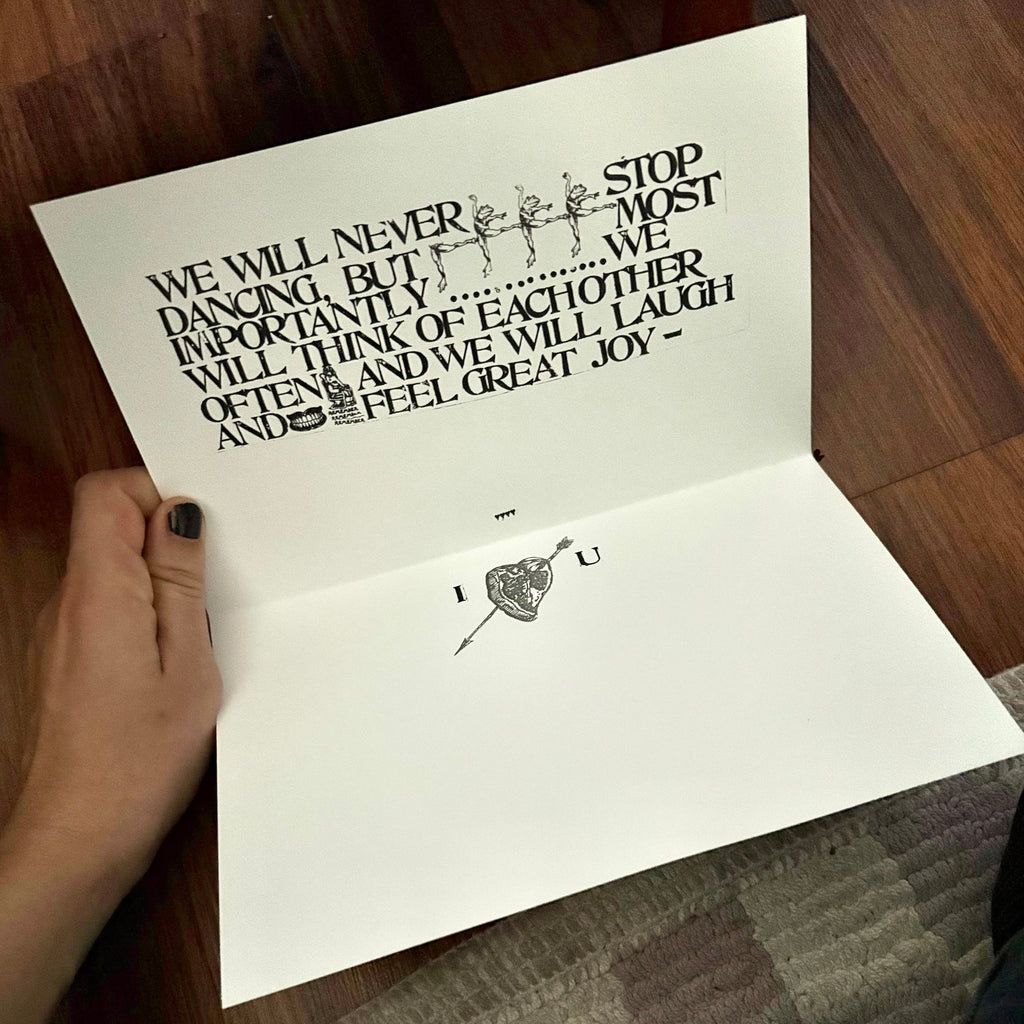 WE WILL NEVER STOP
DANCING, BUT MOST
IMPORTANTLY ............. WE
WILL THINK OF EACHOTHER
OFTEN AND WE WILL LAUGH
AND FEEL GREAT JOY -
REMEMBER
REMEMBER
REMEMBER
I U